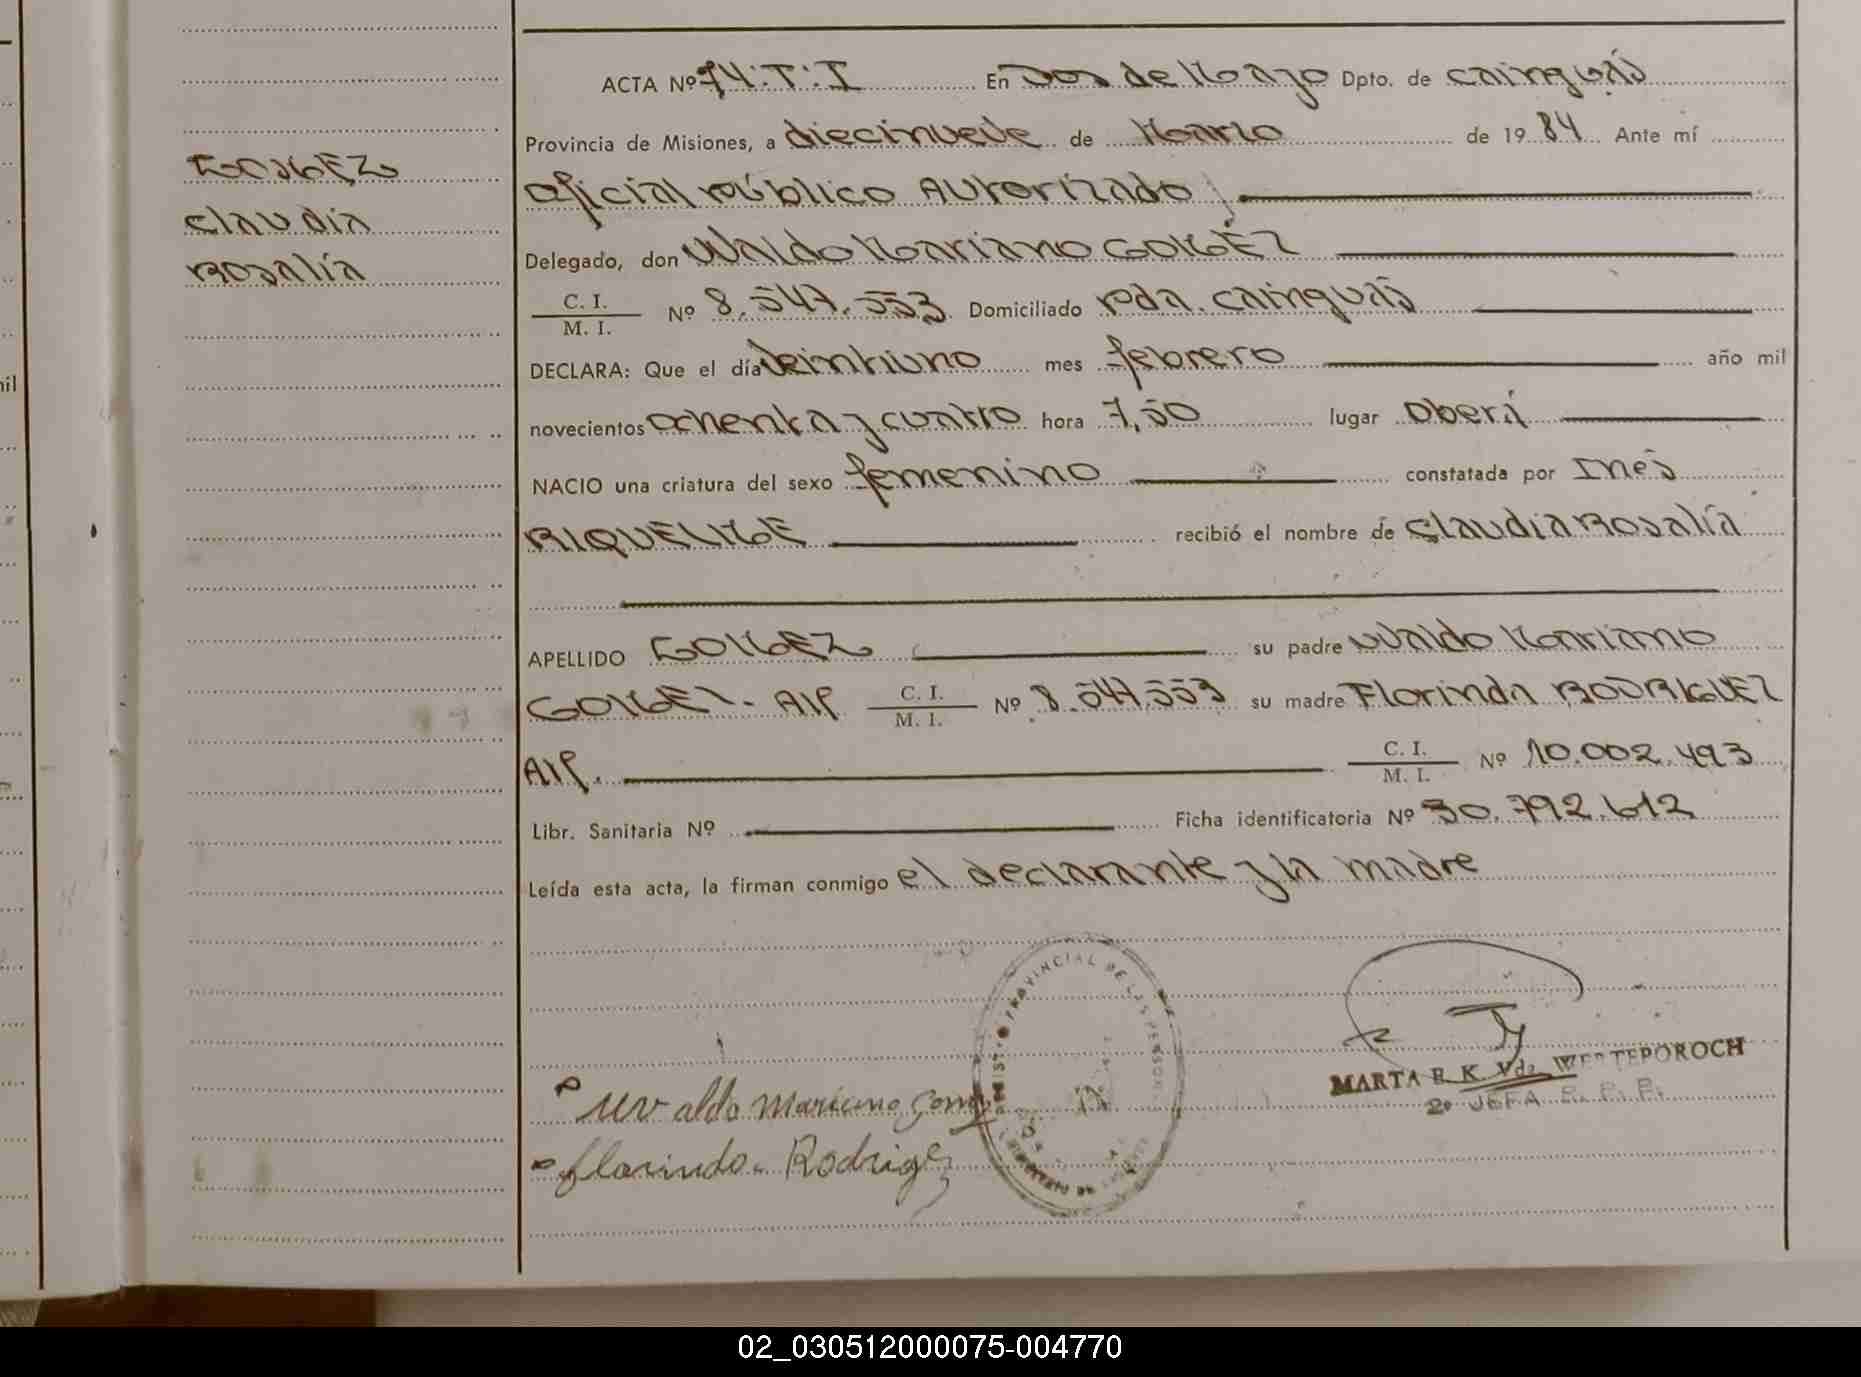 ACTA Nº 74.T.I En Dos de Mayo Dpto. de Cainguás
Provincia de Misiones, a diecinueve de Marzo de 1984 Ante mí
Oficial Público Autorizado
Delegado, don Uvaldo Mariano GOMEZ
C. I. / M. I. Nº 8.547.553 Domiciliado Pda. Cainguás
DECLARA: Que el día veintiuno mes febrero año mil
novecientos ochenta y cuatro hora 7,50 lugar Oberá
NACIO una criatura del sexo femenino constatada por Inés
RIQUELME recibió el nombre de Claudia Rosalía
APELLIDO GOMEZ su padre Uvaldo Mariano
GOMEZ- AIP C. I. / M. I. Nº 8.547.553 su madre Florinda RODRIGUEZ
AIP. C. I. / M. I. Nº 10.002.493
Libr. Sanitaria Nº Ficha identificatoria Nº 30.792.612
Leída esta acta, la firman conmigo el declarante y la madre
GOMEZ
Claudia
Rosalía
mil
PROVINCIAL DE LAS PERSONAS
Uvaldo Mariano Gomez
florinda Rodrigez
MARTA R. K. Vda. WESTEPOROCH
2º JEFA R. P. P.
02_030512000075-004770